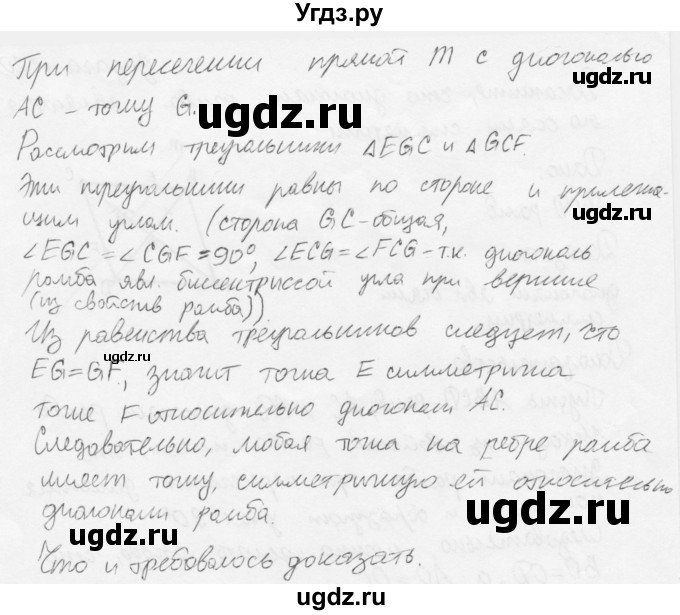 Угдз.ру
При пересечении прямой m с диагональю
AC – точку G.
Рассмотрим треугольники △EGC и △GCF.
Эти треугольники равны по стороне и прилежа-
щим углам. (сторона GC – общая,
∠EGC = ∠CGF = 90°, ∠ECG = ∠FCG – т.к. диогональ
ромба явл. биссектриссой угла при вершине
(из свойств ромба))
Из равенства треугольников следует, что
EG = GF, значит точка E симметрична
точке F относительно диагонали AC.
Следовательно, любая точка на ребре ромба
имеет точку, симметричную ей относительно
диагонали ромба.
Что и требовалось доказать.
ugdz.ru
ugdz.ru
ugdz.ru
ugdz.ru
ugdz.ru
ugdz.ru
ugdz.ru
ugdz.ru
ugdz.ru